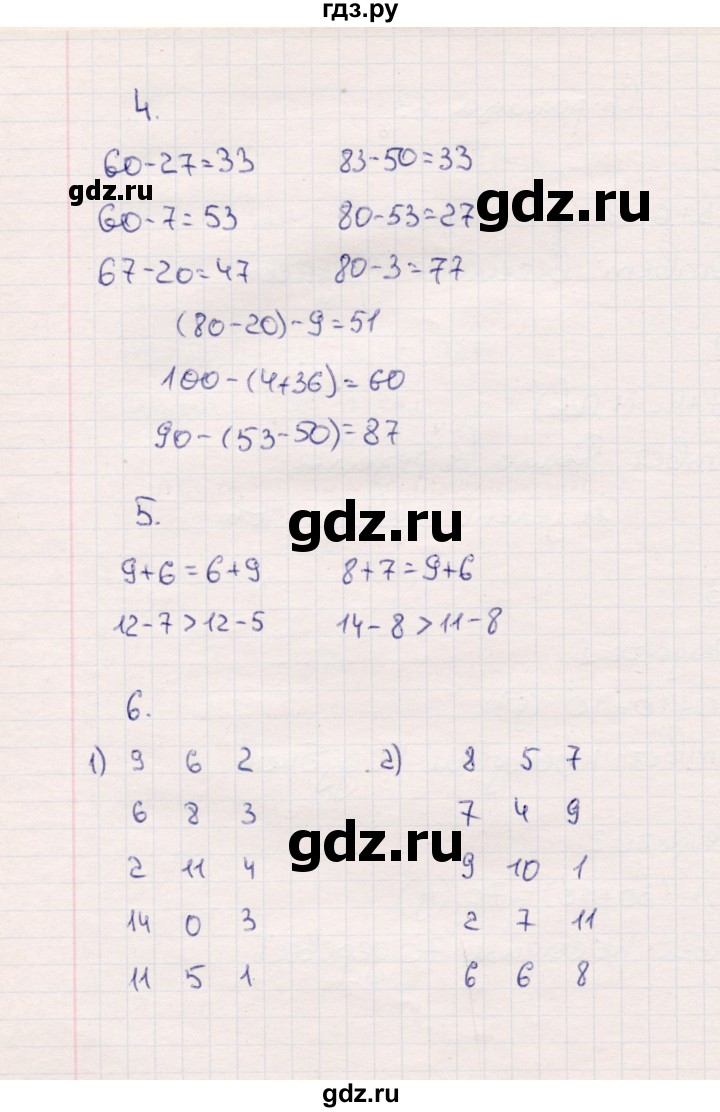 гдз.ру
4.
60-27=33 83-50=33
gdz.ru
gdz.ru
60-7=53 80-53=27
67-20=47 80-3=77
(80-20)-9=51
100-(4+36)=60
90-(53-50)=87
gdz.ru
5.
9+6=6+9 8+7=9+6
12-7>12-5 14-8>11-8
6.
1) 9 6 2 2) 8 5 7
6 8 3 7 4 9
gdz.ru
2 11 4 9 10 1
14 0 3 2 7 11
11 5 1 6 6 8
gdz.ru